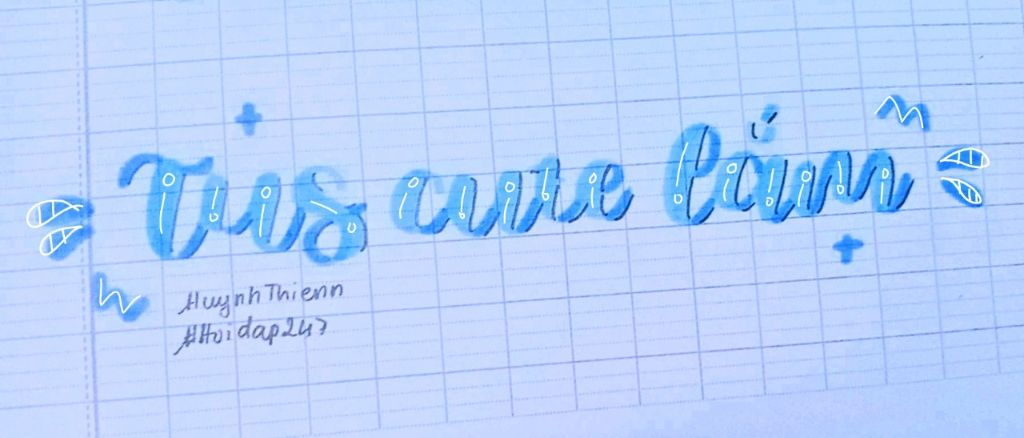 Tus cute lắm
HuynhThienn
#Hoidap247